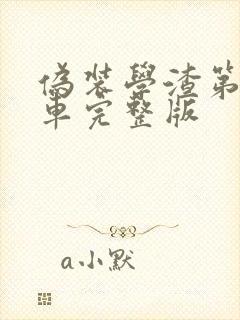 偽装學渣第
車完整版
a小默